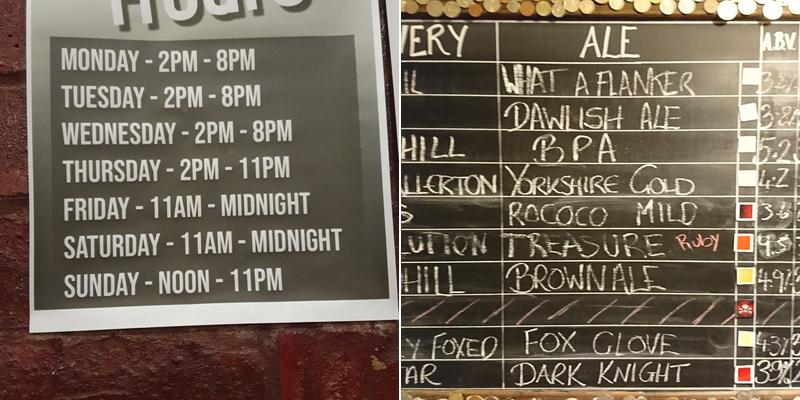 Hours
MONDAY - 2PM - 8PM
TUESDAY - 2PM - 8PM
WEDNESDAY - 2PM - 8PM
THURSDAY - 2PM - 11PM
FRIDAY - 11AM - MIDNIGHT
SATURDAY - 11AM - MIDNIGHT
SUNDAY - NOON - 11PM
VERY ALE A.B.V.
IL WHAT A FLANKER
DAWLISH ALE
HILL BPA 5.2
LLERTON YORKSHIRE GOLD 4.2
S ROCOCO MILD 3.6
UTION TREASURE RUBY
HILL BROWN ALE 4.9%
Y FOXED FOX GLOVE 4.3%
AR DARK KNIGHT